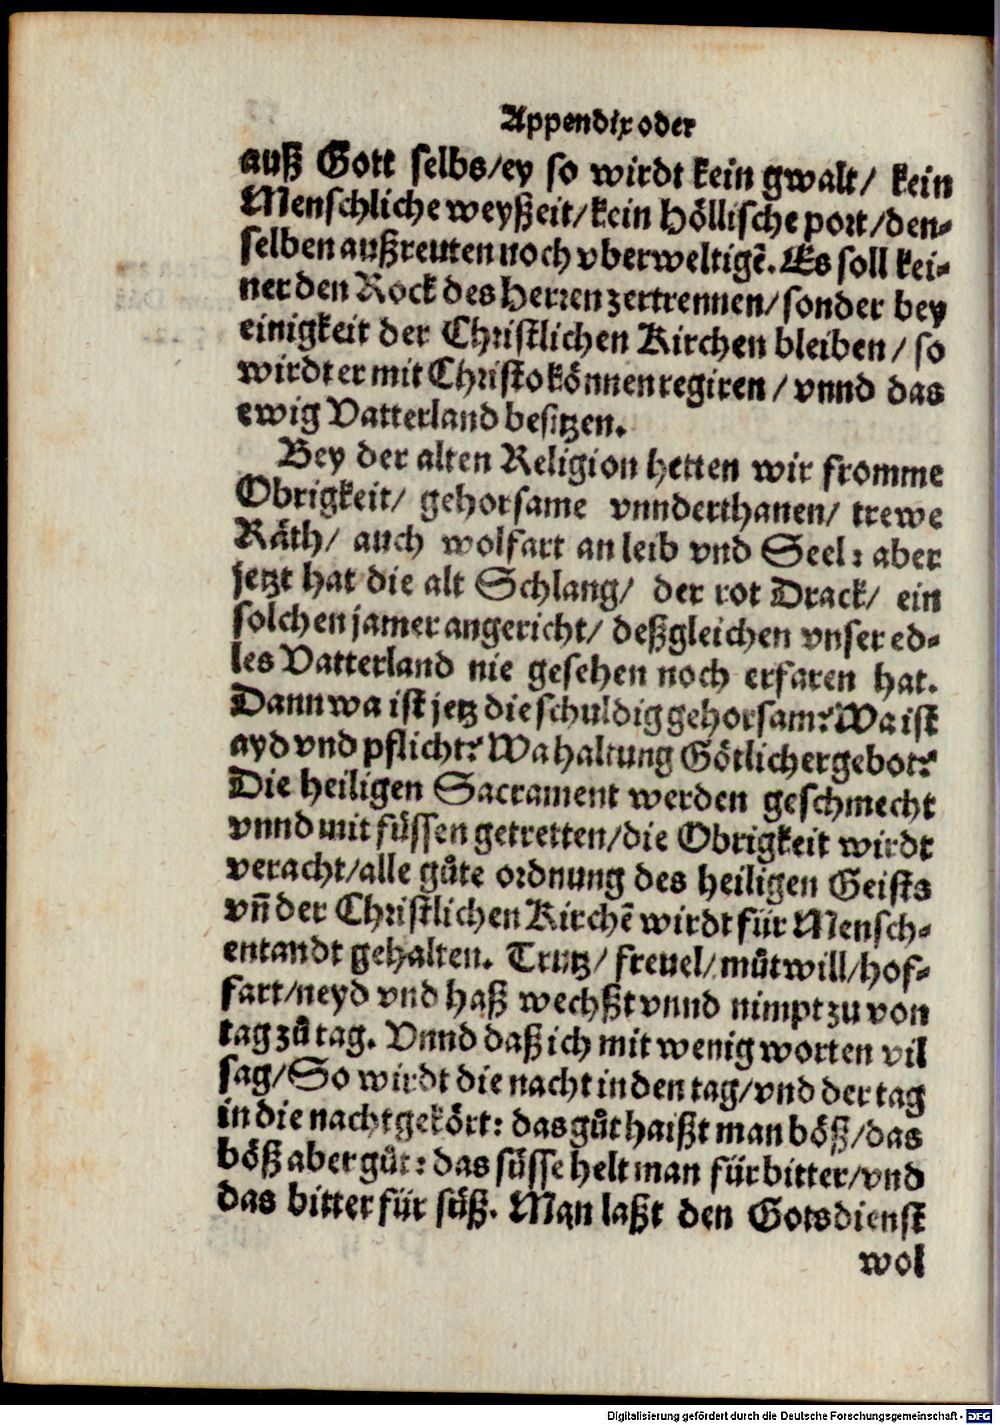 Appendix oder
auß Gott selbs/ey so wirdt kein gwalt/ kein
Menschliche weyßeit/kein Höllische port/den-
selben außreuten noch vberweltigē. Es soll kei-
ner den Rock des Herren zertrennen/sonder bey
einigkeit der Christlichen Kirchen bleiben/ so
wirdt er mit Christo können regiren/ vnnd das
ewig Vatterland besitzen.
Bey der alten Religion hetten wir fromme
Obrigkeit/ gehorsame vnnderthanen/ trewe
Räth/ auch wolfart an leib vnd Seel: aber
jetzt hat die alt Schlang/ der rot Drack/ ein
solchen jamer angericht/ deßgleichen vnser ed-
les Vatterland nie gesehen noch erfaren hat.
Dann wa ist jetz die schuldig gehorsam? Wa ist
ayd vnd pflicht? Wa haltung Götlicher gebot?
Die heiligen Sacrament werden geschmecht
vnnd mit füssen getretten/die Obrigkeit wirdt
veracht/alle gůte ordnung des heiligen Geists
vñ der Christlichen Kirchē wirdt für Mensch-
entandt gehalten. Trutz/ freuel/ můtwill/hof-
fart/neyd vnd haß wechßt vnnd nimpt zu von
tag zů tag. Vnnd daß ich mit wenig worten vil
sag/So wirdt die nacht in den tag/vnd der tag
in die nacht gekört: das gůt haißt man böß/das
böß aber gůt: das süsse helt man für bitter/vnd
das bitter für süß. Man laßt den Gotsdienst
wol
Digitalisierung gefördert durch die Deutsche Forschungsgemeinschaft - DFG